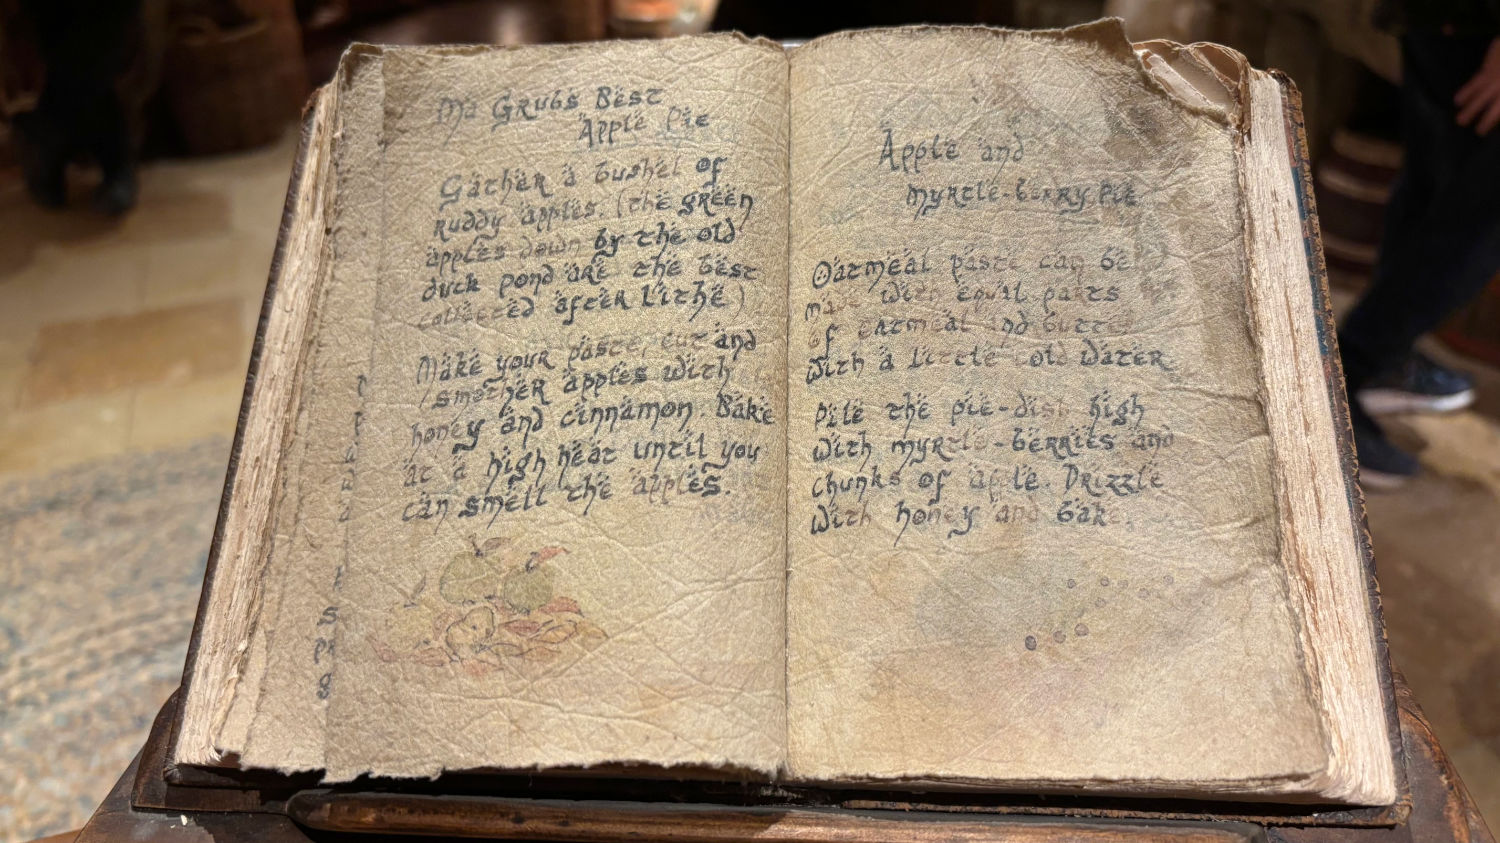 Ma Grubs Best
Apple Pie
Gather a bushel of
ruddy apples. (the green
apples down by the old
duck pond are the best
collected after Lithe)
Make your paste, cut and
smother apples with
honey and cinnamon. Bake
at a high heat until you
can smell the apples.
Apple and
myrtle-berry Pie
Oatmeal paste can be
made with equal parts
of oatmeal and butter
with a little old water
Pile the pie-dish high
with myrtle-berries and
chunks of apple. Drizzle
with honey and bake.